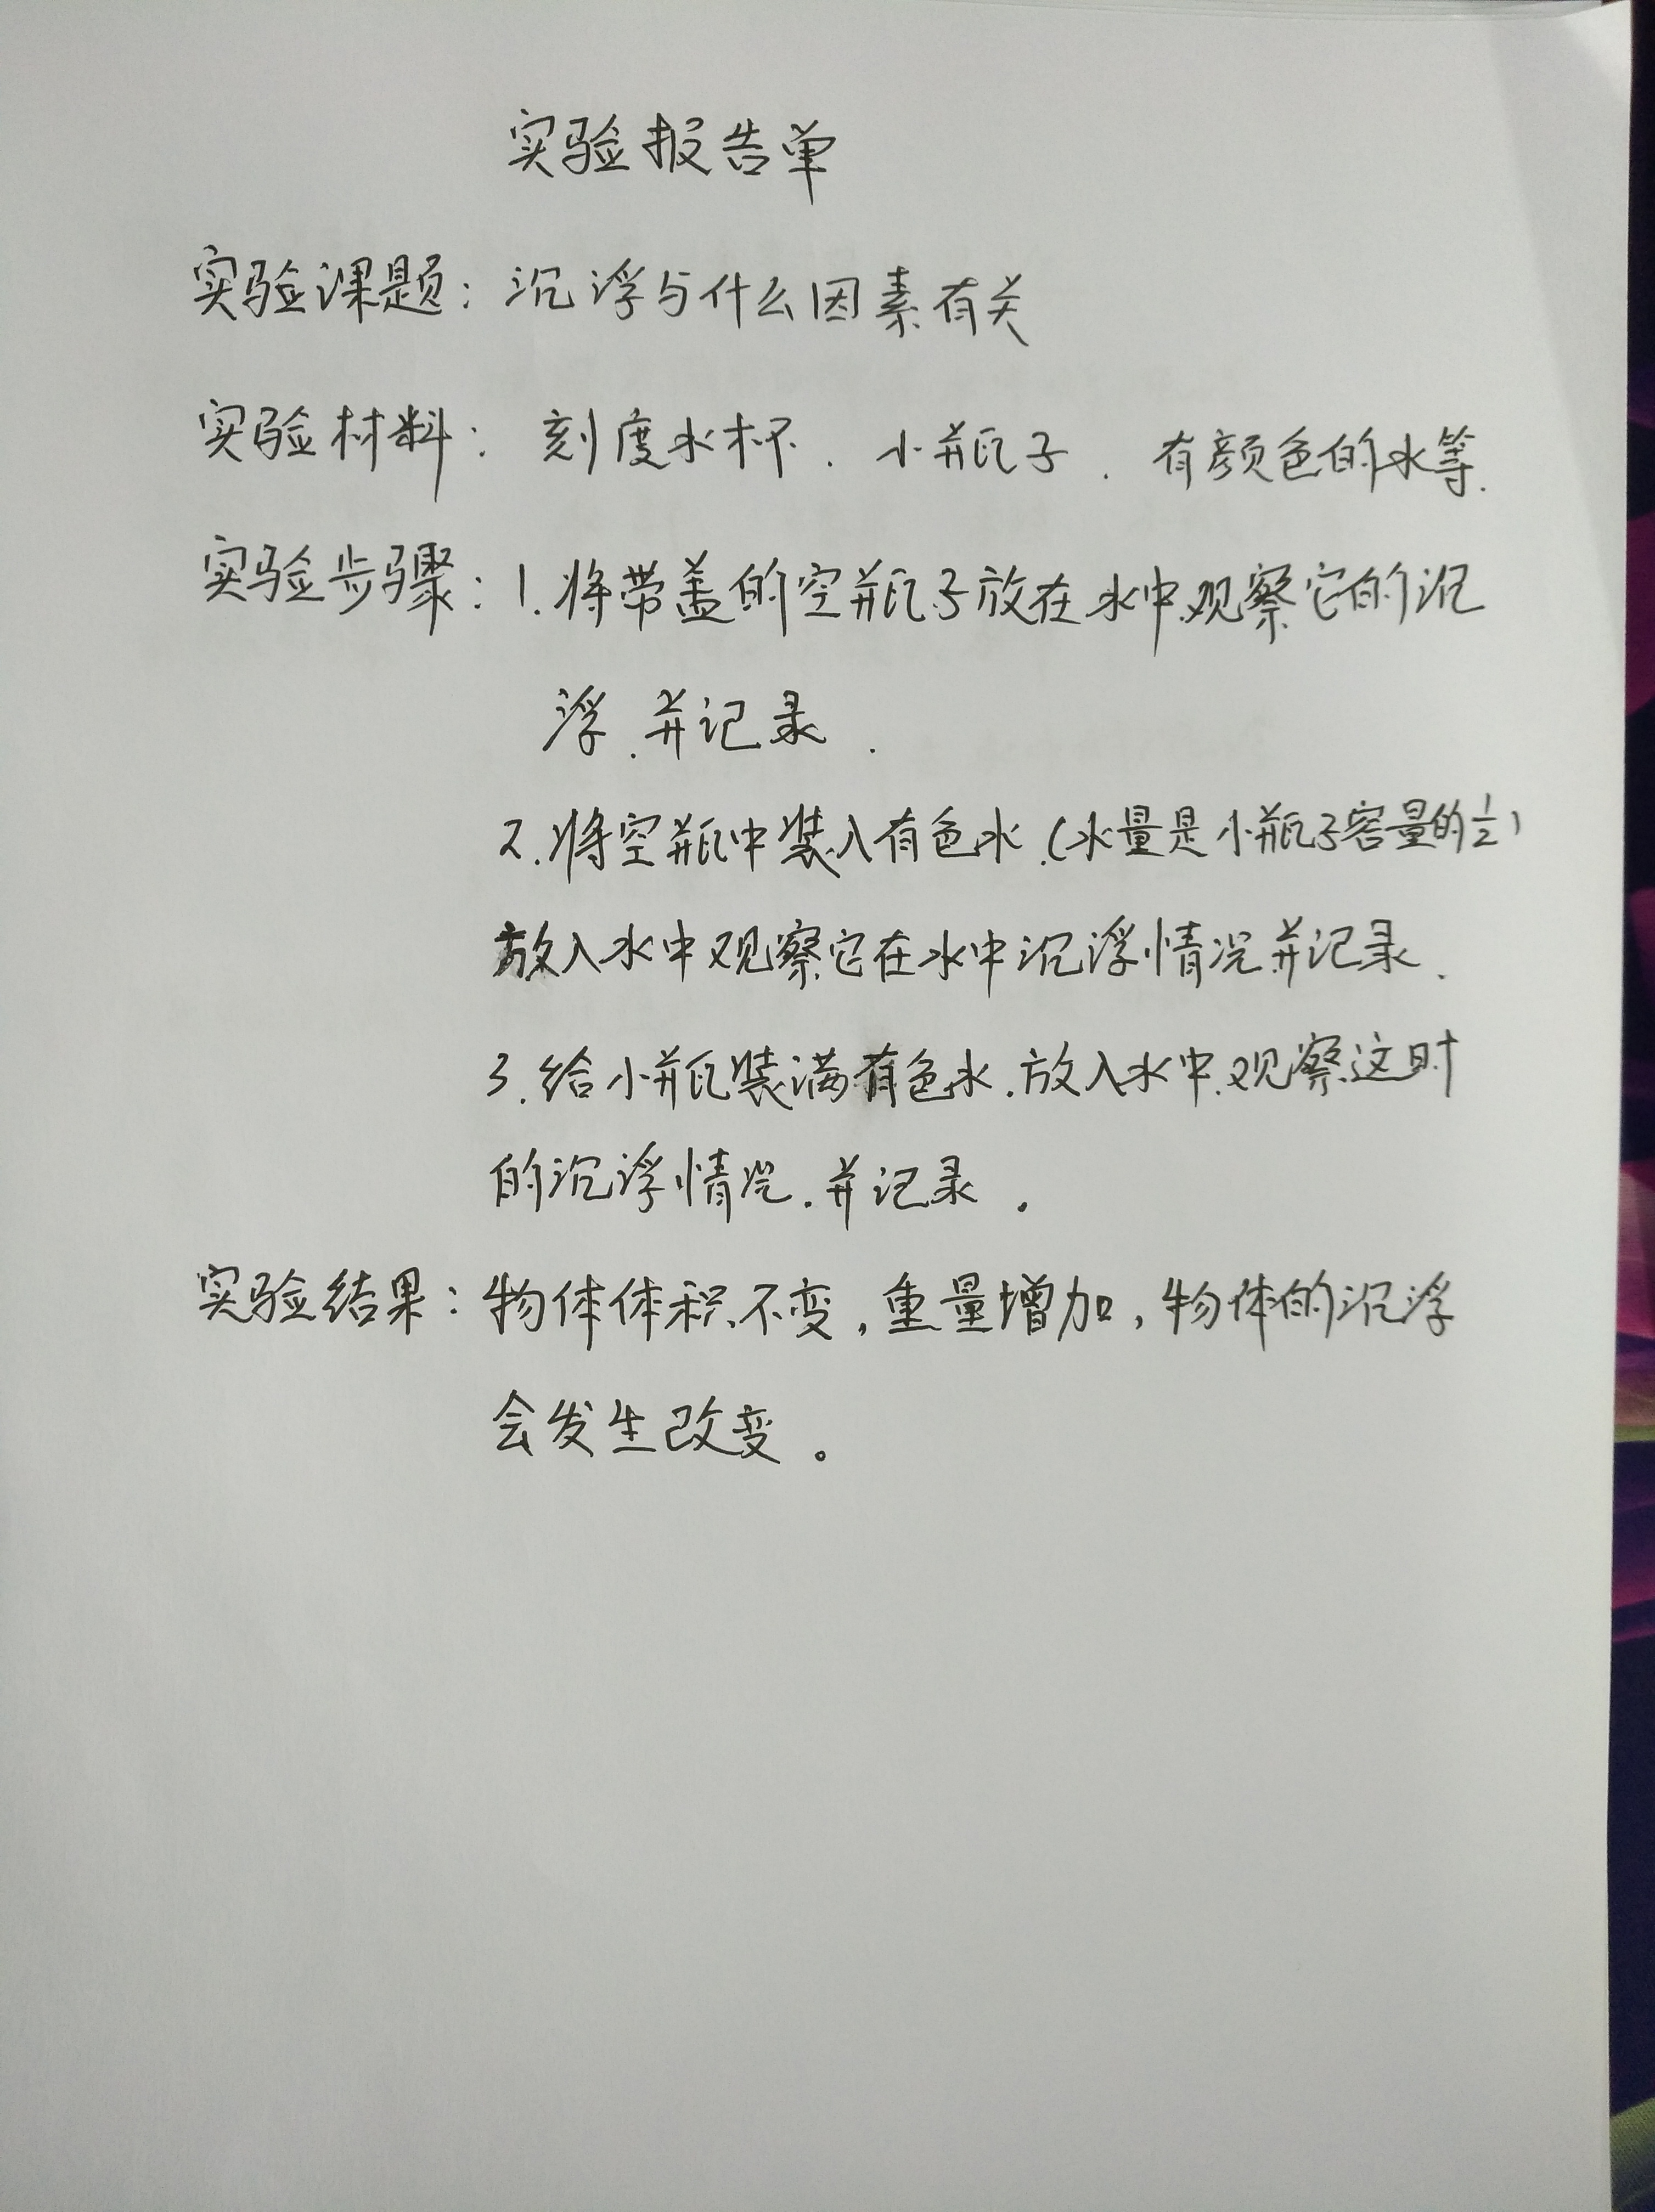 实验报告单
实验课题：沉浮与什么因素有关
实验材料：刻度水杯．小瓶子．有颜色的水等．
实验步骤：1.将带盖的空瓶子放在水中．观察它的沉
浮．并记录．
2.将空瓶中装入有色水．(水量是小瓶子容量的½)
放入水中观察它在水中沉浮情况并记录．
3.给小瓶装满有色水．放入水中．观察这时
的沉浮情况．并记录。
实验结果：物体体积不变，重量增加，物体的沉浮
会发生改变。